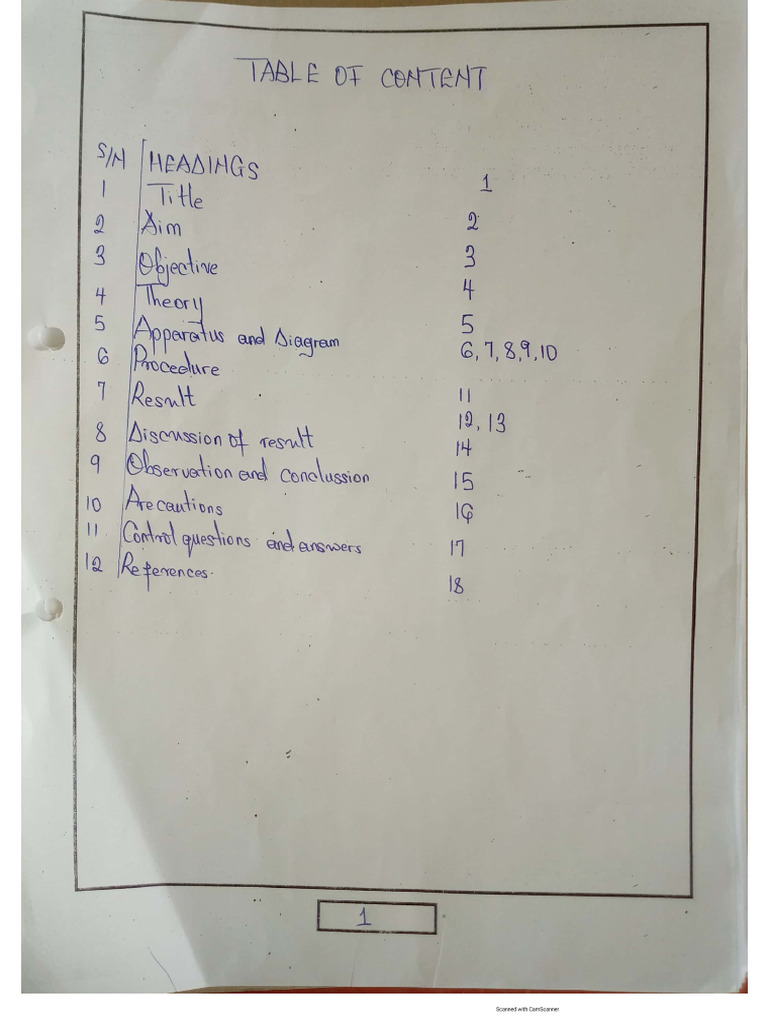 TABLE OF CONTENT
S/N HEADINGS
1 Title 1
2 Aim 2
3 Objective 3
4 Theory 4
5 Apparatus and Diagram 5
6 Procedure 6, 7, 8, 9, 10
7 Result 11
8 Discussion of result 12, 13
9 Observation and Conclussion 14
10 Precautions 15
11 Control questions and answers 16
12 References. 17
18
1
Scanned with CamScanner